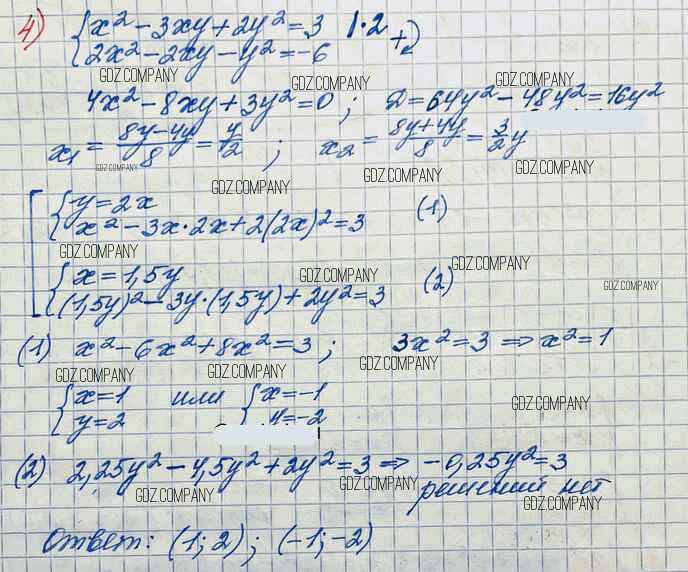 4) { x² - 3xy + 2y² = 3 | · 2
{ 2x² - 2xy - y² = -6 +)
GDZ.COMPANY GDZ.COMPANY GDZ.COMPANY
4x² - 8xy + 3y² = 0 ; D = 64y² - 48y² = 16y²
x₁ = (8y - 4y)/8 = y/2 ; x₂ = (8y + 4y)/8 = 3/2 y
GDZ.COMPANY GDZ.COMPANY GDZ.COMPANY GDZ.COMPANY
[ { y = 2x
{ x² - 3x · 2x + 2(2x)² = 3 (1)
GDZ.COMPANY GDZ.COMPANY GDZ.COMPANY GDZ.COMPANY
{ x = 1,5y
{ (1,5y)² - 3y · (1,5y) + 2y² = 3 (2)
(1) x² - 6x² + 8x² = 3 ; 3x² = 3 ⇒ x² = 1
GDZ.COMPANY GDZ.COMPANY GDZ.COMPANY
{ x = 1 или { x = -1
{ y = 2 { y = -2
GDZ.COMPANY
(2) 2,25y² - 4,5y² + 2y² = 3 ⇒ -0,25y² = 3
GDZ.COMPANY GDZ.COMPANY
решений нет
GDZ.COMPANY
Ответ: (1; 2) ; (-1; -2)